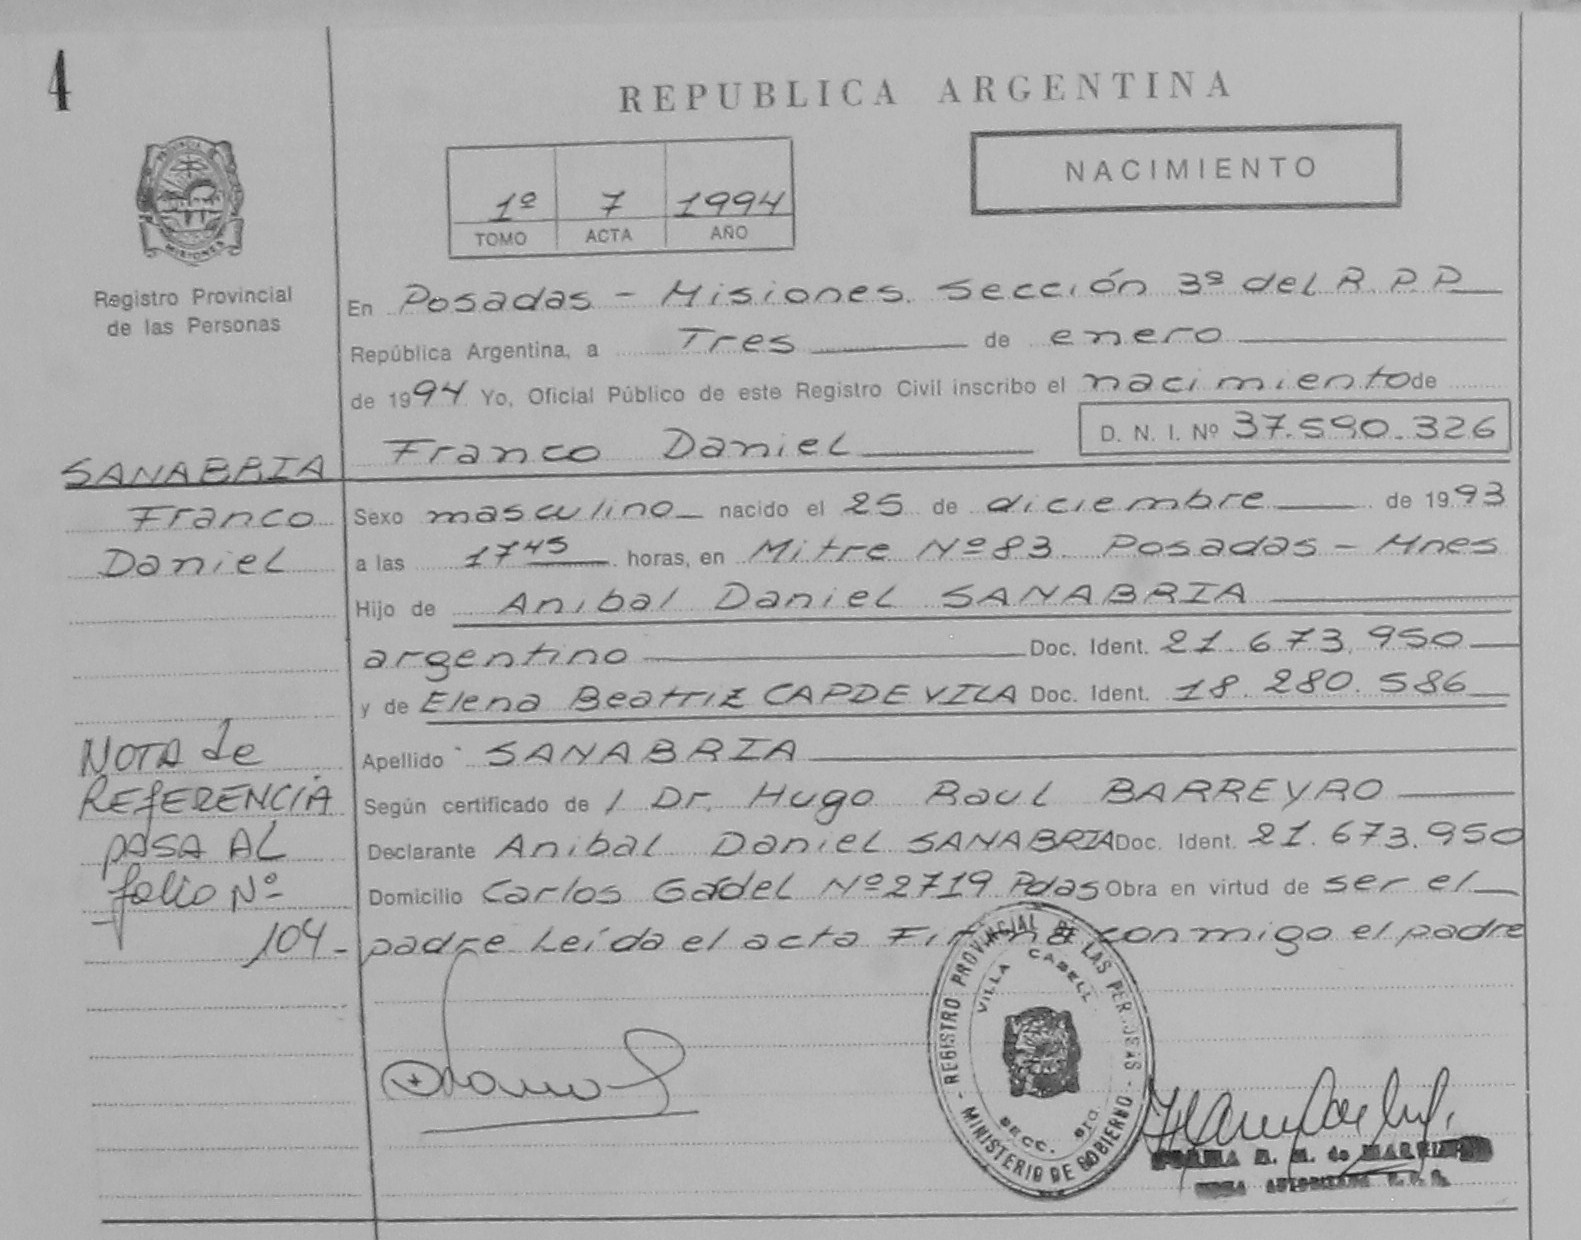 4
REPUBLICA ARGENTINA
NACIMIENTO
1º 7 1994
TOMO ACTA AÑO
PROVINCIA DE
MISIONES
Registro Provincial
de las Personas
En Posadas - Misiones. Sección 3ª del R.P.P.
República Argentina, a Tres de enero
de 1994 Yo, Oficial Público de este Registro Civil inscribo el nacimiento de
Franco Daniel D. N. I. Nº 37.590.326
SANABRIA
Franco
Daniel
Sexo masculino nacido el 25 de diciembre de 1993
a las 17 45 horas, en Mitre Nº 83. Posadas - Mnes
Hijo de Anibal Daniel SANABRIA
argentino Doc. Ident. 21.673.950
y de Elena Beatriz CAPDEVILA Doc. Ident. 18.280.586
Apellido SANABRIA
Según certificado de / Dr. Hugo Raul BARREYRO
Declarante Anibal Daniel SANABRIA Doc. Ident. 21.673.950
Domicilio Carlos Gadel Nº 2719 Pdas Obra en virtud de ser el
padre Leída el acta Firma conmigo el padre
NOTA de
REFERENCIA
PASA AL
folio Nº
104-
REGISTRO PROVINCIAL DE LAS PERSONAS
- MINISTERIO DE GOBIERNO -
VILLA CABELL
SECC.
de